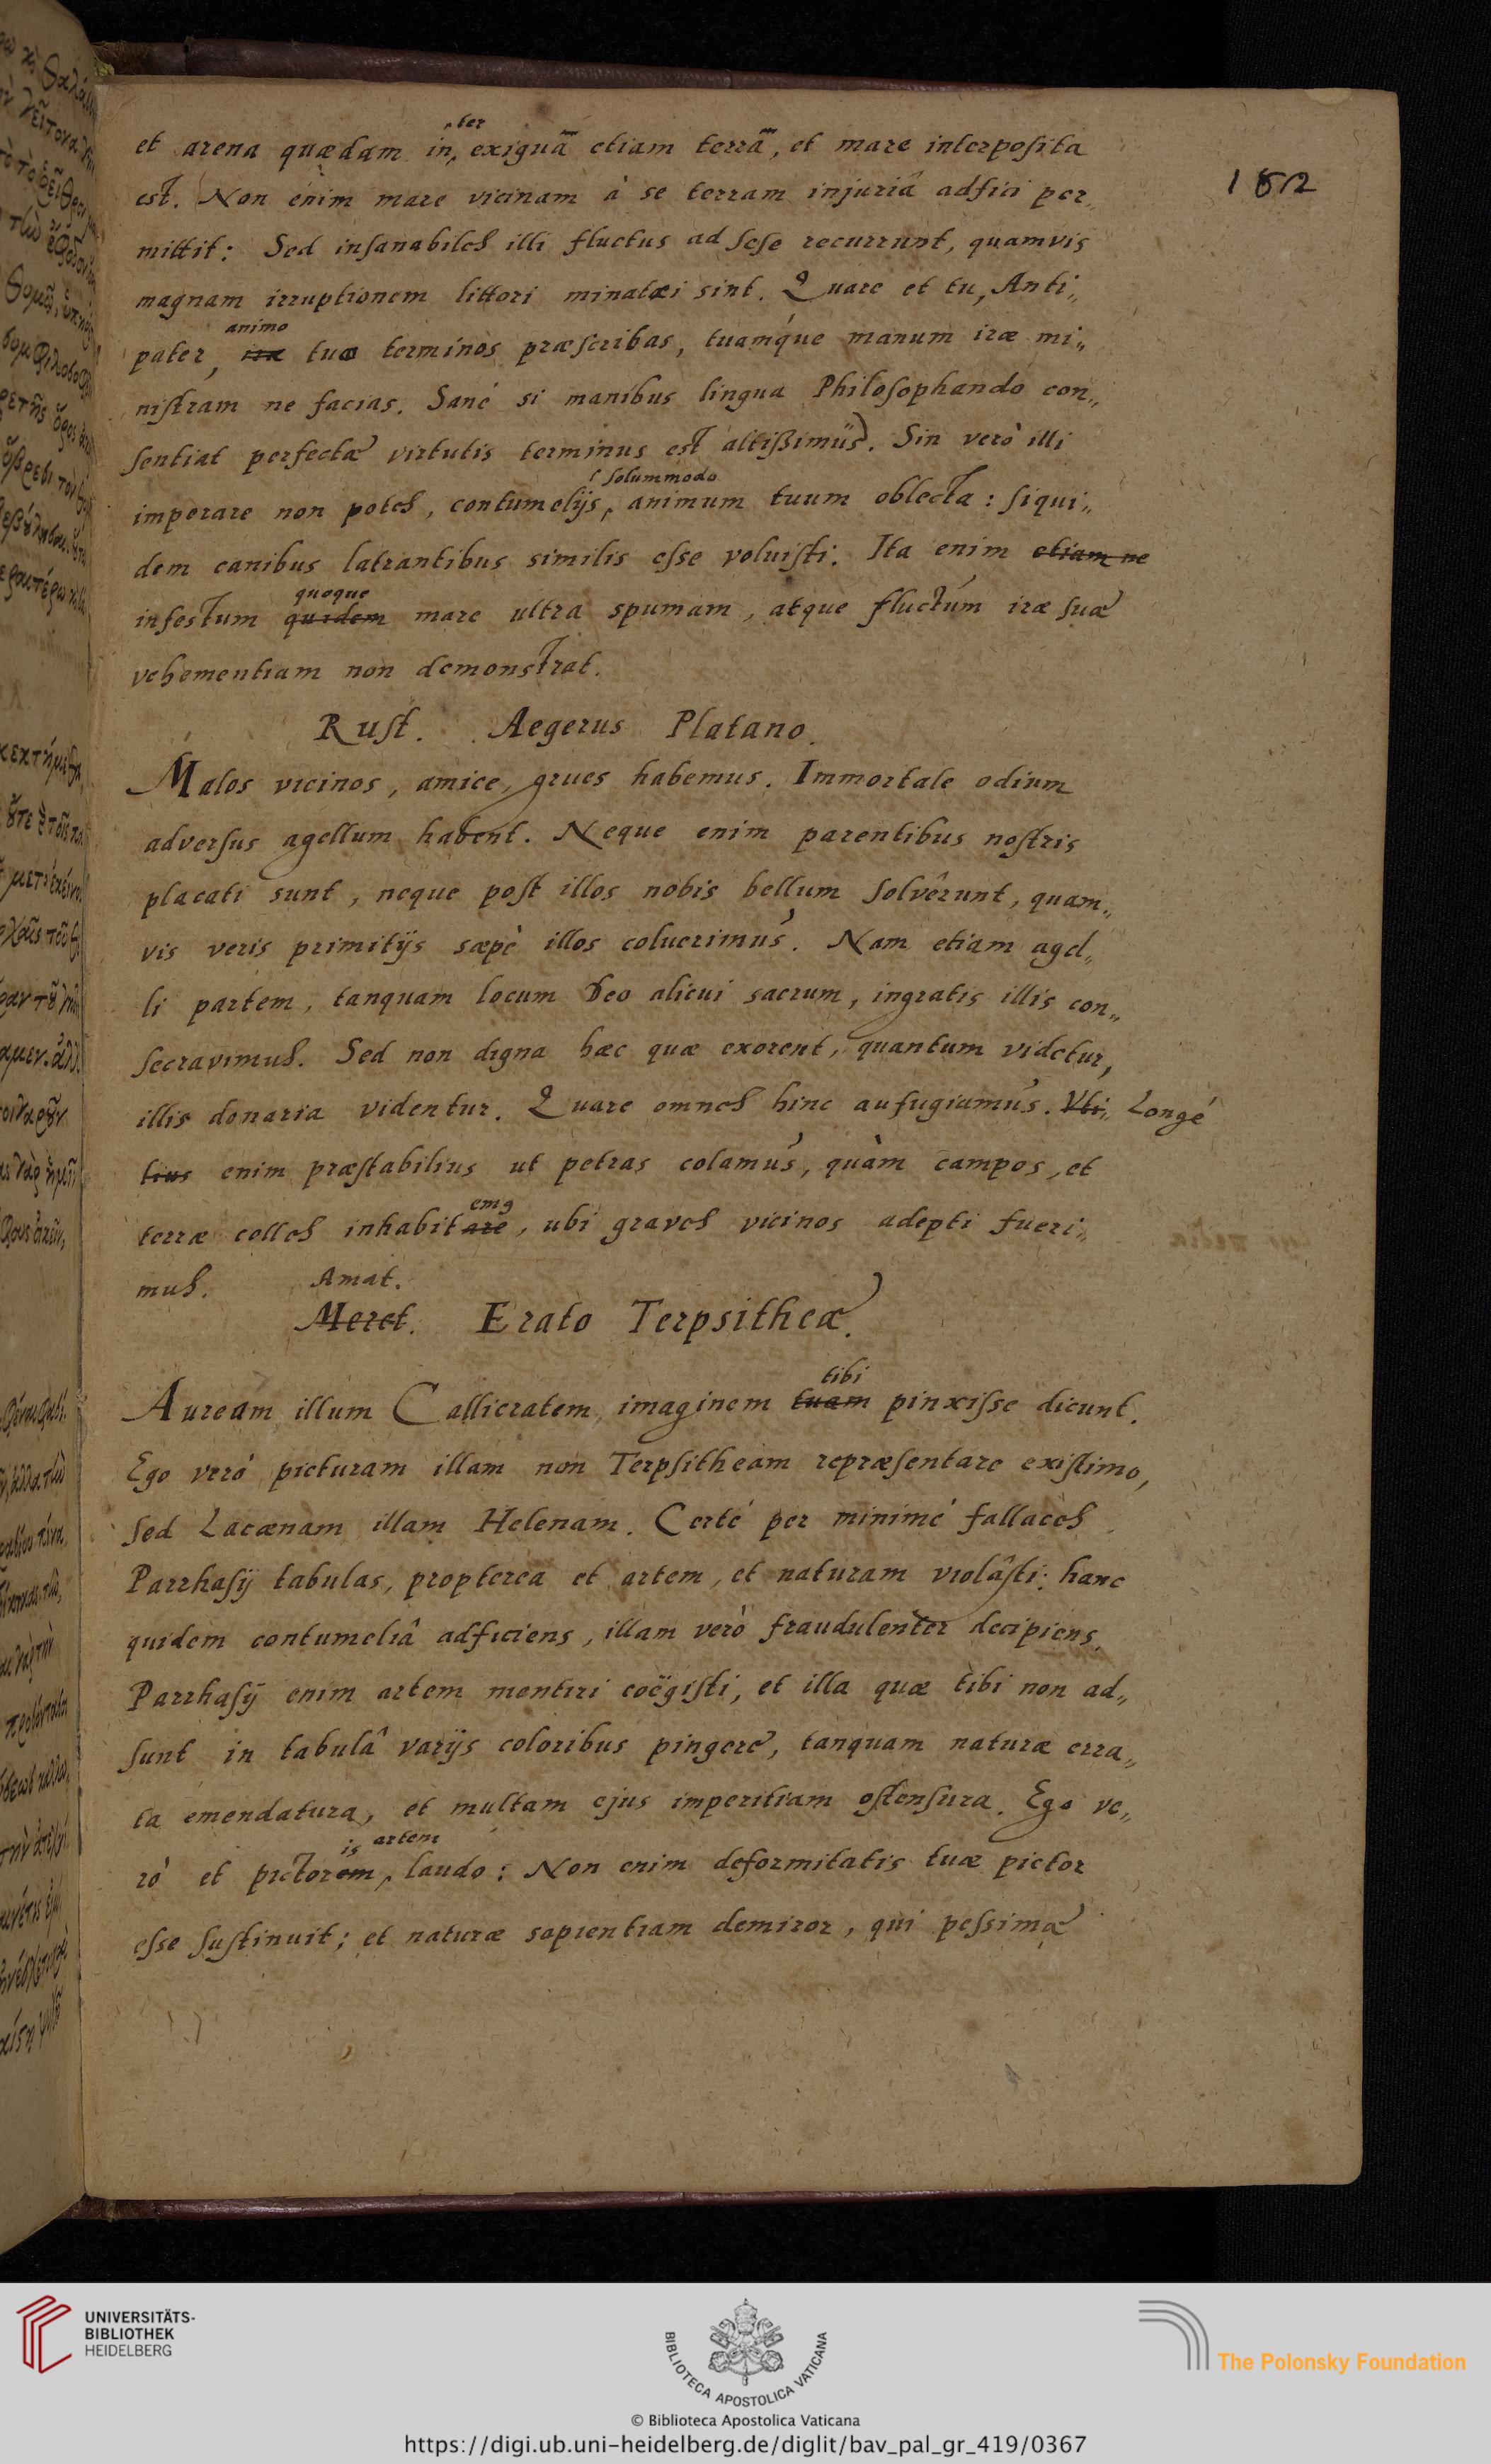 et arena quædam inter exiguã etiam terrã, et mare interposita
est. Non enim mare vicinam à se terram injuriâ adfici per„
mittit: Sed insanabiles illi fluctus ad sese recurrunt, quamvis
magnam irruptionem littori minatæi sint. Quare et tu, Anti„
animo
pater, iræ tuo terminos præscribas, tuamq́ue manum iræ mi„
nistram ne facias. Sané si manibus lingua Philosophando con„
sentiat perfectæ virtutis terminus est altißimus. Sin verò illi
solummodo
imperare non potes, contumelijs, animum tuum oblecta: siqui„
dem canibus latrantibus similis esse voluisti. Ita enim etiam ne
quoque
infestum quidem mare ultra spumam, atque fluctúm iræ suæ
vehementiam non demonstrat.
Rust. Aegerus Platano.
Malos vicinos, amice, grues habemus. Immortale odium
adversus agellum habent. Neque enim parentibus nostris
placati sunt, neque post illos nobis bellum solvêrunt, quam„
vis veris primitijs sæpè illos coluerimus. Nam etiam agel„
li partem, tanquam locum Deo alicui sacrum, ingratis illis con„
secravimus. Sed non digna hæc quæ exorent, quantum videtur,
illis donaria videntur. Quare omnes hinc aufugiamus. Uti„ Longé
tius enim præstabilius ut petras colamus, quàm campos, et
em9
terræ colles inhabitare, ubi graves vicinos adepti fueri„
mus.
Amat.
Meret. Erato Terpsitheæ.
tibi
Auream illum Callicratem imaginem tuam pinxisse dicunt.
Ego veró picturam illam non Terpsitheam repræsentare existimo,
sed Lacænam illam Helenam. Certé per minimé fallaces
Parrhasij tabulas, propterea et artem, et naturam violâsti: hanc
quidem contumeliâ adficiens, illam verò fraudulenter decipiens.
Parrhasij enim artem mentiri coëgisti, et illa quæ tibi non ad„
sunt in tabulâ varijs coloribus pingere, tanquam naturæ erra„
ta emendatura, et multam ejus imperitiam ostensura. Ego ve„
is artem
rò et pictorem, laudo: Non enim deformitatis tuæ pictor
esse sustinuit; et naturæ sapientiam demiror, qui pessimæ
182
UNIVERSITÄTS-
BIBLIOTHEK
HEIDELBERG
BIBLIOTECA APOSTOLICA VATICANA
© Biblioteca Apostolica Vaticana
The Polonsky Foundation
https://digi.ub.uni-heidelberg.de/diglit/bav_pal_gr_419/0367